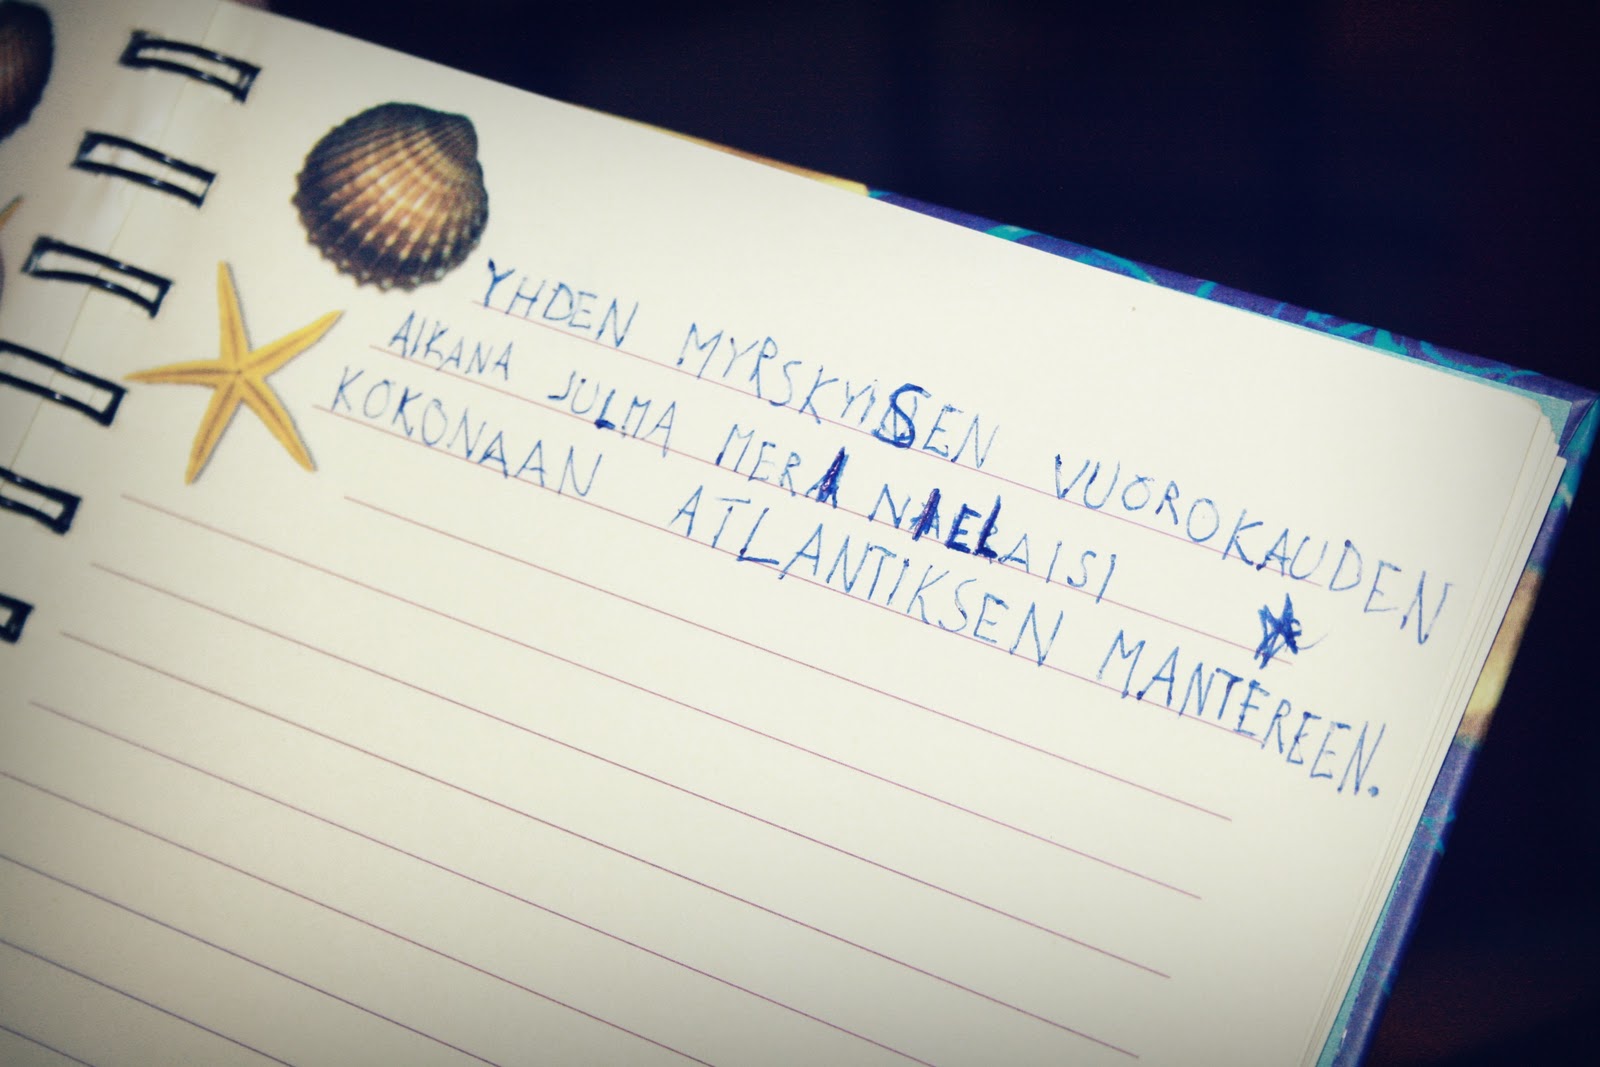 YHDEN MYRSKYISEN VUOROKAUDEN
AIKANA JULMA MERA NAELAISI
KOKONAAN ATLANTIKSEN MANTEREEN.